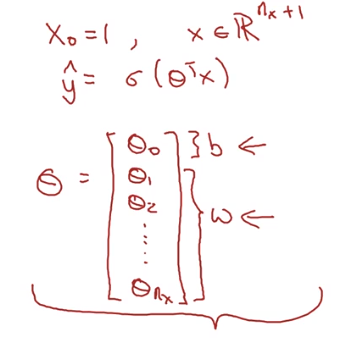 X₀ = 1 , x ∈ ℝⁿˣ⁺¹
ŷ = σ (θᵀx)
θ = [
θ₀ } b ←
θ₁
θ₂
⋮
θₙₓ
] } w ←